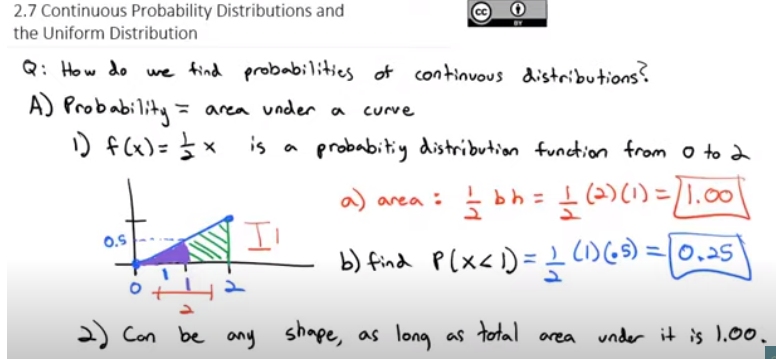 2.7 Continuous Probability Distributions and
the Uniform Distribution
cc
BY
Q: How do we find probabilities of continuous distributions?
A) Probability = area under a curve
1) f(x) = 1/2 x is a probabitiy distribution function from 0 to 2
a) area : 1/2 bh = 1/2 (2)(1) = 1.00
0.5
1
b) find P(x<1) = 1/2 (1)(.5) = 0.25
1
0 1 2
2
2) Can be any shape, as long as total area under it is 1.00.